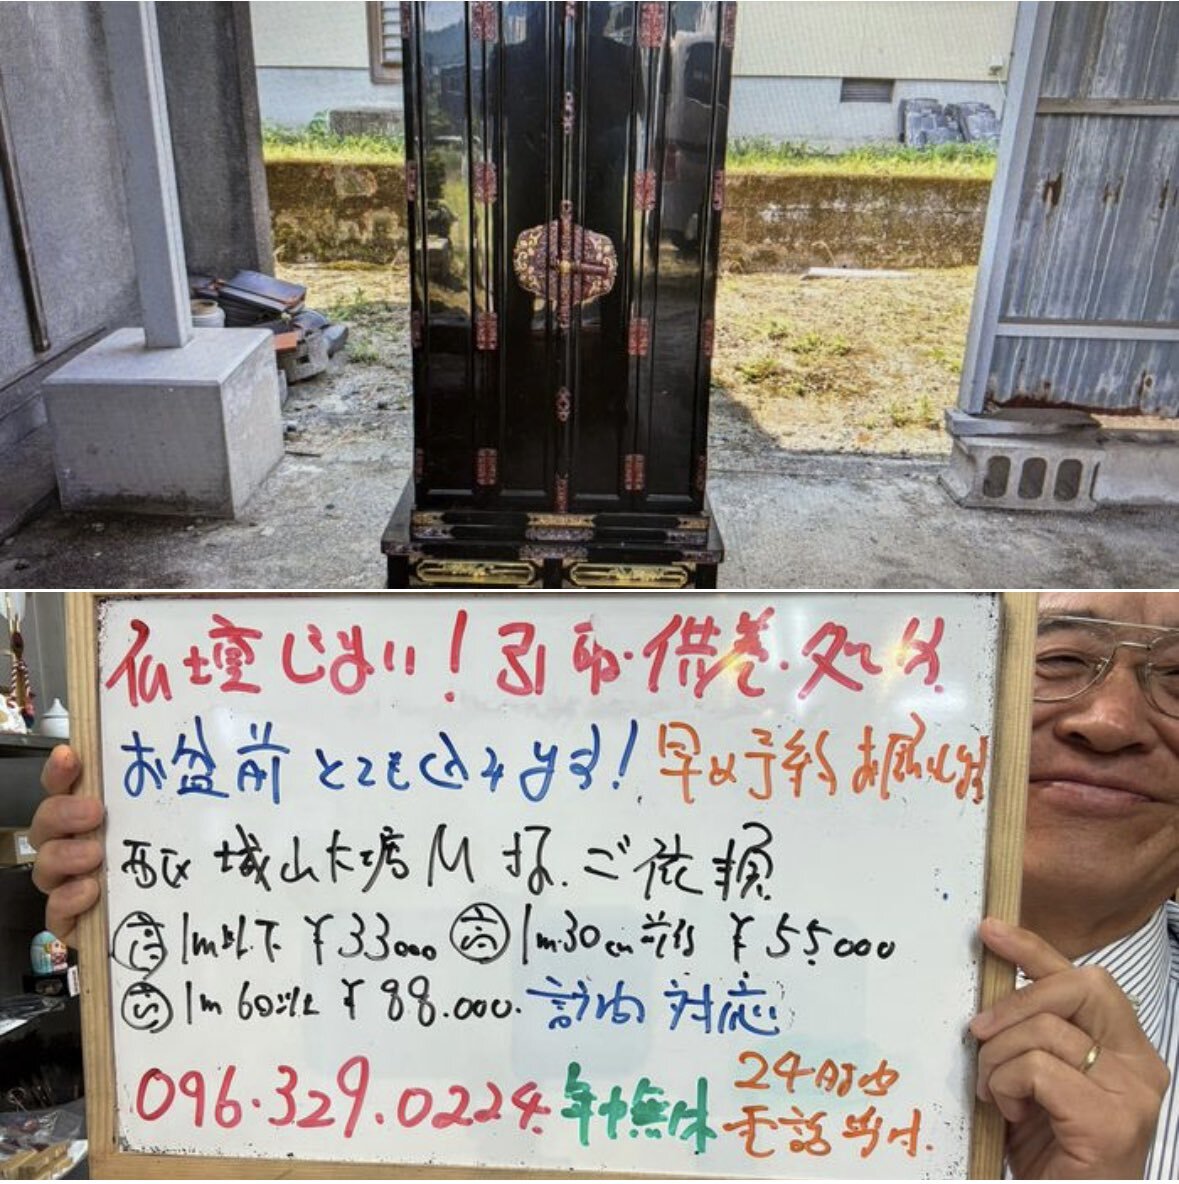 仏壇じまい！引取・供養・処分
お盆前とてもこみます！早め予約お願いします
西区城山大塘M様ご依頼
1m以下 ¥33000 1m30cm前後 ¥55.000
1m60以上 ¥88.000. 訪問対応
096.329.0224 年中無休 24時間電話受付.